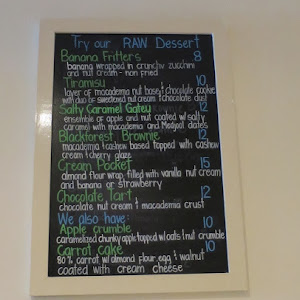 Try our RAW Dessert
Banana Fritters 8
banana wrapped in crunchy zucchini
and nut cream - non fried
Tiramisu 10
layer of macadamia nut base & chocolate cookie
with duo of sweetened nut cream & chocolate dust
Salty Caramel Gateu 12
ensemble of apple and nut coated w/ salty
caramel with macadamia and Medjool dates
Blackforest Brownie 12
macadamia & cashew based topped with cashew
cream & cherry glaze
Cream Pocket 15
almond flour wrap, filled with vanilla nut cream
and banana or strawberry
Chocolate Tart 12
chocolate nut cream & macademia crust
We also have:
Apple crumble 10
caramelized chunky apple topped w/ oats & nut crumble
Carrot cake 10
80% carrot w/ almond flour, egg & walnut
coated with cream cheese